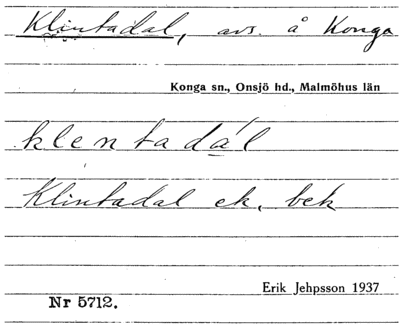 Klintadal, avs. å Konga
Konga sn., Onsjö hd., Malmöhus län
klentadál
Klintadal ek. bek
Erik Jehpsson 1937
Nr 5712.